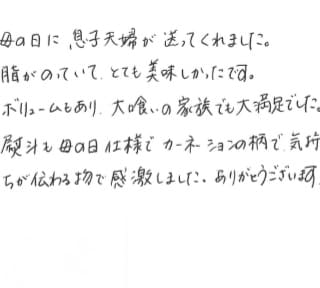 母の日に、息子夫婦が送ってくれました。
脂がのっていて、とても美味しかったです。
ボリュームもあり、大喰いの家族でも大満足でした。
熨斗も母の日仕様でカーネーションの柄で、気持
ちが伝わる物で感激しました。ありがとうございます